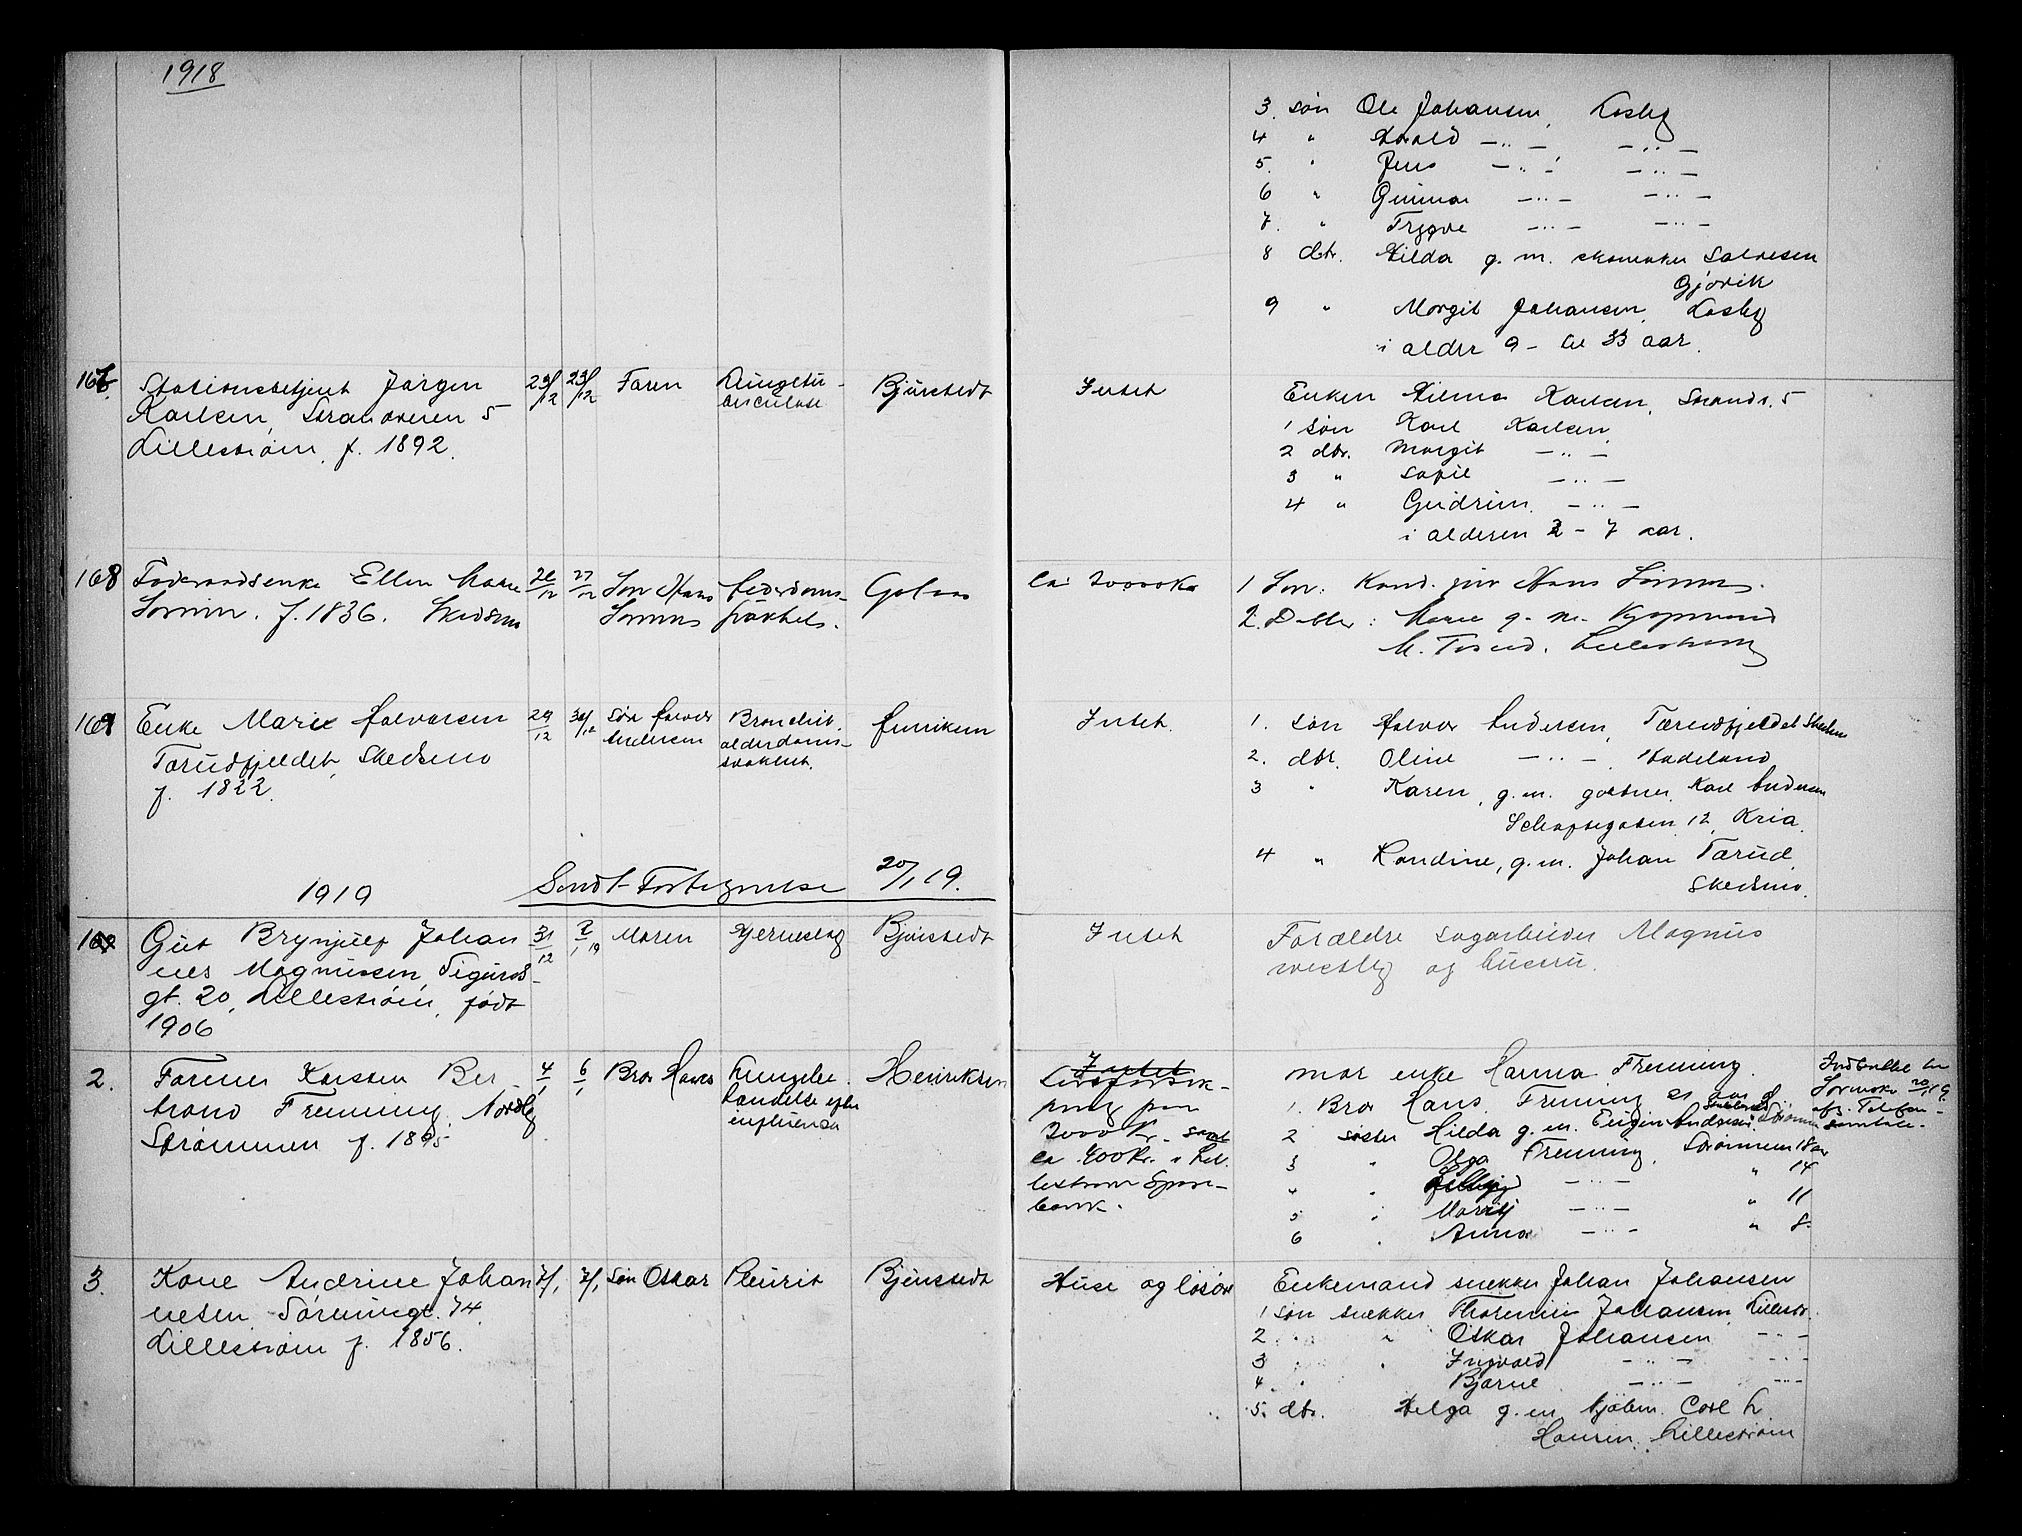 1918
3. søn Ole Johansen, Losby
4 " Harald —"— —"—
5. " Jens —"— —"—
6 " Gunnar —"— —"—
7. " Trygve —"— —"—
8 dtr. Hilda g. m. skomaker Salvesen
Gjøvik
9 " Margit Johansen, Losby
i alder 9 - til 33 aar.
167. Stationsbetjent Jørgen
Karlsen, Strandveien 5
Lillestrøm, f. 1892.
23/12 23/12 Faren Lungetu-
berculose Bjørstedt
Intet
Enken Hilma Karlsen, Strandv. 5
1 søn Karl Karlsen
2 dtr. Margit —"—
3 " Sofie —"—
4 " Gudrun —"—
i alderen 2 - 7 aar.
168 Føderaadsenke Ellen Marie
f. 1836. Skedsmo
26/12 27/12 Søn Hans
Alderdoms-
svakhet.
Ca 20000 Kr
1 Søn: Kand. jur Hans
2. Datter: Marie g. m.
M. Lillestrøm
169 Enke Marie Halvorsen
Tærudfjeldet, Skedsmo
f. 1822.
29/12 30/12 Søn Halvor
Andersen
Bronchit.
alderdoms-
svakhet.
Henriksen
Intet.
1. søn Halvor Andersen, Tærudfjeldet Skedsmo
2. dtr. Oline —"—, Hadeland
3 " Karen, g. m. gartner Karl Andersen
Schoftsgaten 12, Kria.
4 " Randine, g. m. Johan Tærud,
Skedsmo.
Sendt Fortegnelse 20/1 19.
1919
Gut Brynjulf Johan
nes Magnussen, Sigurds-
gt. 20, Lillestrøm, født
1906
31/12 2/1 19 Moren Hjerneslag Bjørstedt
Intet
Forældre sagarbeider Magnus
og hustru.
2. Former Karsten Ber-
trand Frenning, Nordby
Strømmen f. 1895
4/1 6/1 Bror Hans Lungebe-
tændelse efter
influensa
Henriksen
Intet
Livsforsik-
ring paa
2000 Kr. samt
ca 400 Kr. i Lil-
lestrøm Spare-
bank.
mor enke Hanna Frenning.
1. Bror Hans Frenning 21 aar
2 søster Hilda g. m. Eugen Andersen Strømmen
3 " Olga Frenning, Strømmen 18 aar
4 " —"— " 14
5 " Marit —"— " 11
6 " Anna —"— " 8.
Indkaldt
20/1 19.
Telefon-
samtale.
3. Kone Andrine Johan
nesen, Storgt. 74.
Lillestrøm f. 1856.
7/1 7/1 Søn Oskar Pleurit Bjørstedt
Huse og løsøre
Enkemand snekker Johan Johansen
1 søn snekker Thormin Johansen, Lillestr.
2 " " Oskar Johansen —"—
3 " " Ingvald —"— —"—
4 " Bjarne —"— —"—
5. dtr. Helga g. m. Carl L
Hansen, Lillestrøm